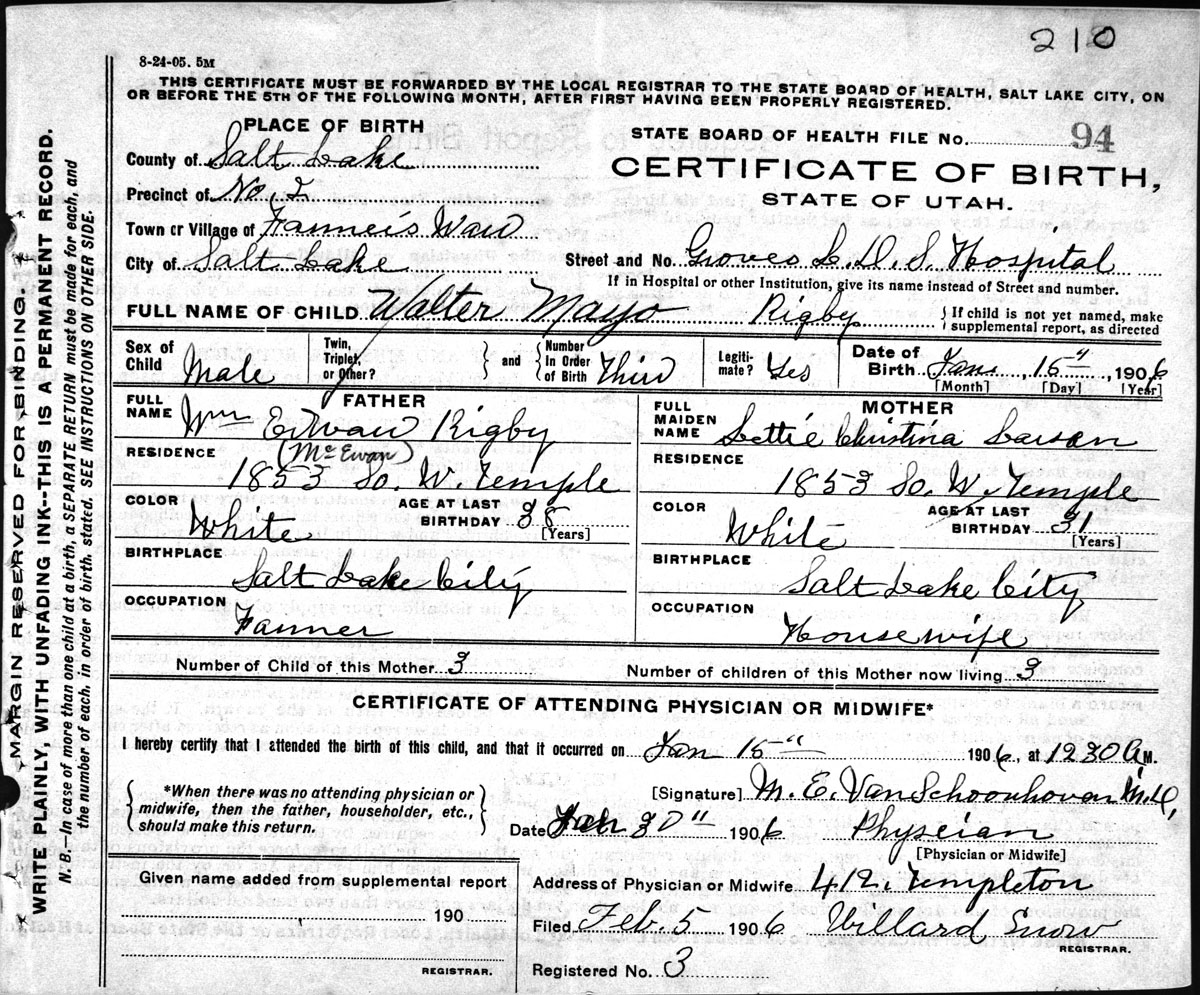 210
8-24-05. 5M
THIS CERTIFICATE MUST BE FORWARDED BY THE LOCAL REGISTRAR TO THE STATE BOARD OF HEALTH, SALT LAKE CITY, ON
OR BEFORE THE 5TH OF THE FOLLOWING MONTH, AFTER FIRST HAVING BEEN PROPERLY REGISTERED.
PLACE OF BIRTH
STATE BOARD OF HEALTH FILE No. 94
County of Salt Lake
CERTIFICATE OF BIRTH,
Precinct of No. 2
STATE OF UTAH.
Town or Village of Farmer's Ward
City of Salt Lake
Street and No. Groves L. D. S. Hospital
If in Hospital or other Institution, give its name instead of Street and number.
FULL NAME OF CHILD Walter Mayo Rigby { If child is not yet named, make supplemental report, as directed
Sex of Child Male
Twin, Triplet, or Other? } and { Number In Order of Birth Third
Legitimate? Yes
Date of Birth Jan. 15", 1906
[Month] [Day] [Year]
FATHER
FULL NAME Wm Edward Rigby
(McEwan)
RESIDENCE 1853 So. W. Temple
COLOR White
AGE AT LAST BIRTHDAY 38 [Years]
BIRTHPLACE Salt Lake City
OCCUPATION Farmer
MOTHER
FULL MAIDEN NAME Lettie Christina Larson
RESIDENCE 1853 So. W. Temple
COLOR White
AGE AT LAST BIRTHDAY 31 [Years]
BIRTHPLACE Salt Lake City
OCCUPATION Housewife
Number of Child of this Mother 3
Number of children of this Mother now living 3
CERTIFICATE OF ATTENDING PHYSICIAN OR MIDWIFE*
I hereby certify that I attended the birth of this child, and that it occurred on Jan 15" 1906, at 1230 A M.
{ *When there was no attending physician or
midwife, then the father, householder, etc.,
should make this return. }
[Signature] M. E. Van Schoonhovan M.D,
Date Jan 30" 1906 Physeian
[Physician or Midwife]
Given name added from supplemental report
190
REGISTRAR.
Address of Physician or Midwife 412. Templeton
Filed Feb. 5 1906 Willard Snow
REGISTRAR.
Registered No. 3
MARGIN RESERVED FOR BINDING.
WRITE PLAINLY, WITH UNFADING INK--THIS IS A PERMANENT RECORD.
N. B.—In case of more than one child at a birth, a SEPARATE RETURN must be made for each, and
the number of each, in order of birth, stated. SEE INSTRUCTIONS ON OTHER SIDE.